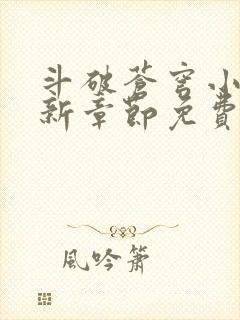 斗破蒼穹小
新章節免費
風吟簫